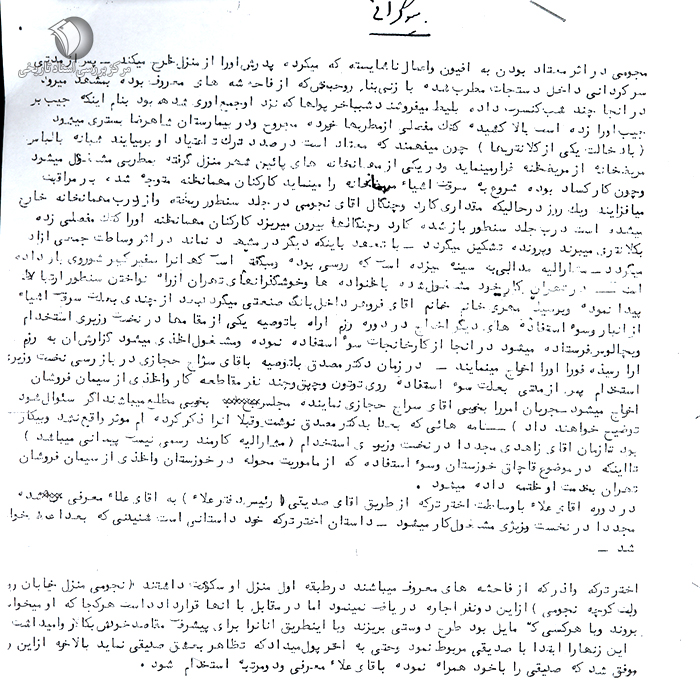 بیوگرافی
مرکز بررسی اسناد تاریخی
نجومی در اثر معتاد بودن به افیون واعمال ناشایسته که میکرده پدرش اورا از منزل خارج میکند ــ پس از مدتی
سرگردانی داخل دستجات مطرب شده با زنی بنام روحبخش که از فاحشه های معروف بوده بمشهد میرود
در انجا چند شب کنسرت داده بلیط میفروشند شب اخر پولها که نزد او جمع اوری شده بود بنام اینکه جیب بر
جیب اورا زده است بالا کشیده کتک مفصلی از مطربها خورده مجروح ودر بیمارستان شاهرضا بستری میشود
( بادخالت یکی از کلانتریها ) چون میفهمند که معتاد است در صدد ترک اعتیاد او برمیایند شبانه بالباس
مریضخانه از مریضخانه فرار مینماید ودر یکی از مهمانخانه های پائین شهر منزل گرفته بمطربی مشغول میشود
وچون کار کساد بوده شروع به سرقت اشیاء مهمانخانه را مینماید کارکنان مهمانخانه متوجه شده بر مراقبت
میافزایند ویک روز درحالیکه مقداری کارد وچنگال اقای نجومی در جلد سنطور ریخته وازدرب مهمانخانه خارج
میشده است درب جلد سنطور باز شده کارد وچنگالها بیرون میریزد کارکنان مهمانخانه اورا کتک مفصلی زده
بکلانتری میبرند وپرونده تشکیل میگردد ــ با تعهد باینکه دیگر در مشهد نماند در اثر وساطت جمعی ازاد
میگردد ــ مشارالیه مدالی به سینه میزده است که روسی بوده ومیگفته است که انرا سفیر کبیر شوروی باو داده
است ــ در تهران کار خود مشغول شده باخانواده ها وخوشگذرانهای تهران ازراه نواختن سنطور ارتباط
پیدا نموده وبوسیله مهری خانم خانم اقای فروهر داخل بانک صنعتی میگردد بعد از چندی بعلت سرقت اشیاء
از انبار وسوء استفاده های دیگر اخراج در دوره رزم اراه باتوصیه یکی از مقامها در نخست وزیری استخدام
وبچالوس فرستاده میشود در انجا از کارخانجات سوء استفاده نموده ومشغول اخاذی میشود گزارش ان به رزم
ارا رسیده فورا اورا اخراج مینمایند ــ در زمان دکتر مصدق باتوصیه باقای سراج حجازی در بازرسی نخست وزیری
استخدام پس از مدتی بعلت سوء استفاده روی توتون وچپق وچند نفر مقاطعه کار واخاذی از سیمان فروشان
اخراج میشود ــ جریان امررا بخوبی اقای سراج حجازی نماینده مجلس بخوبی مطلع میباشند اگر سئوال شود
توضیح خواهند داد ) ــ نامه هائی که بعدا بدکتر مصدق نوشت وقبلا انرا ذکر کرده ام موثر واقع نشد وبیکار
بود تا زمان اقای زاهدی مجددا در نخست وزیری استخدام ( مشارالیه کارمند رسمی نیست پیمانی میباشد )
تااینکه در موضوع قاچاق خوزستان وسوء استفاده که از ماموریت محوله در خوزستان واخاذی از سیمان فروشان
تهران بخدمت او خاتمه داده میشود .
در دوره اقای علاء باوساطت اختر ترکه از طریق اقای صدیقی ( رئیس دفتر علاء ) به اقای علاء معرفی شده
مجددا در نخست وزیری مشغول کار میشود ــ داستان اختر ترکه خود داستانی است شنیدنی که بعدا عرض خواهد
شد ــ
اختر ترکه واذر که از فاحشه های معروف میباشند در طبقه اول منزل او سکونت داشتند ( نجومی منزل خیابان
کوچه نجومی ) از این دونفر اجاره دریافت نمینمود اما در مقابل با انها قرارداد داشت هر کجا که او میخواهد
بروند وبا هر کسی که مایل بود طرح دوستی بریزند وباینطریق انانرا برای پیشرفت مقاصد خودش بکار وامیداشت
این زنها را ابتدا با صدیقی مربوط نمود وحتی به اختر پول میداد که تظاهر بعشق صدیقی نماید بالاخره ازاین
موفق شد که صدیقی را باخود همراه نموده باقای علاء معرفی ودومرتبه استخدام شود .